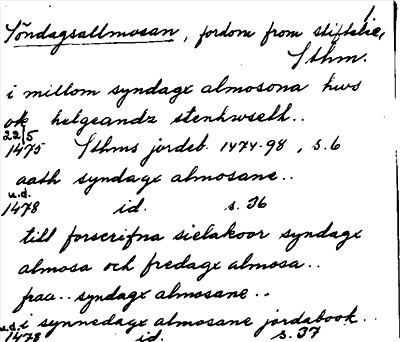 Söndagsallmosan, fordom from stiftelse,
Sthm.
i millom syndagx almosona hws
ok helgeandz stenhwsell..
22/5
1475 Sthms jordeb. 1474-98, s. 6
aath syndagx almosane..
u.d.
1478 id. s. 36
till forscrifna sielakoor syndagx
almosa och fredagx almosa..
fraa.. syndagx almosane..
i synnedagx almosane jordabook..
u.d.
1478 id. s. 37